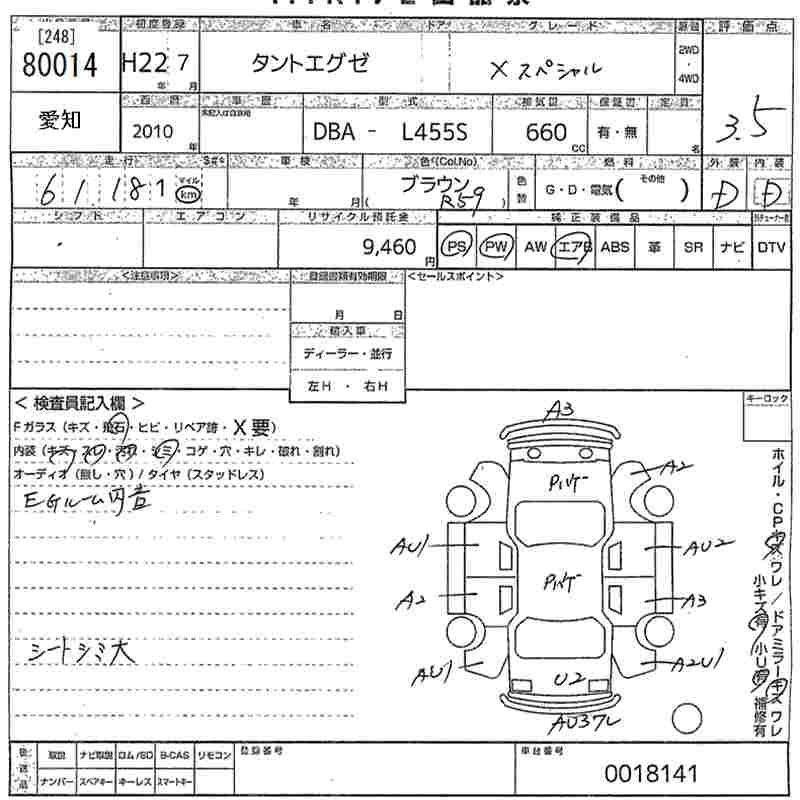 [248]
80014
初度登録 車名 ドア グレード 評価点
H22 7 タントエグゼ X スペシャル 2WD 4WD
年 月
愛知 車歴 型式 排気量 定員 3.5
2010 年 DBA - L455S 660 CC 有・無 名
走行 車検 色(Col.No) 燃料 外装 内装
61,181 マイル km 年 月 ブラウン R59 色替 G・D・電気( その他 ) D D
シフト エアコン リサイクル預託金 純正装備品
9,460 円 PS PW AW エアB ABS 革 SR ナビ DTV
<注意事項> 登録書類有効期限 <セールスポイント>
月 日
輸入車
ディーラー・並行
左H ・ 右H
< 検査員記入欄 > キーロック
Fガラス (キズ・飛石・ヒビ・リペア跡・X要)
内装 (キズ・スレ・・シミ・コゲ・穴・キレ・破れ・割れ)
オーディオ (無し・穴) / タイヤ (スタッドレス)
EGルーム内音
シートシミ大
A3
A2
Pハゲ
AU1 AU2
Pハゲ
A2 A3
AU1 A2U1
U2
AU37レ
ホイル・CPキズワレ / ドアミラーキズワレ
小キズ有 小U有 補修有
後送品 取説 ナビ取説 ロム/SD B-CAS リモコン 登録番号 車台番号
ナンバー スペアキー キーレス スマートキー 0018141